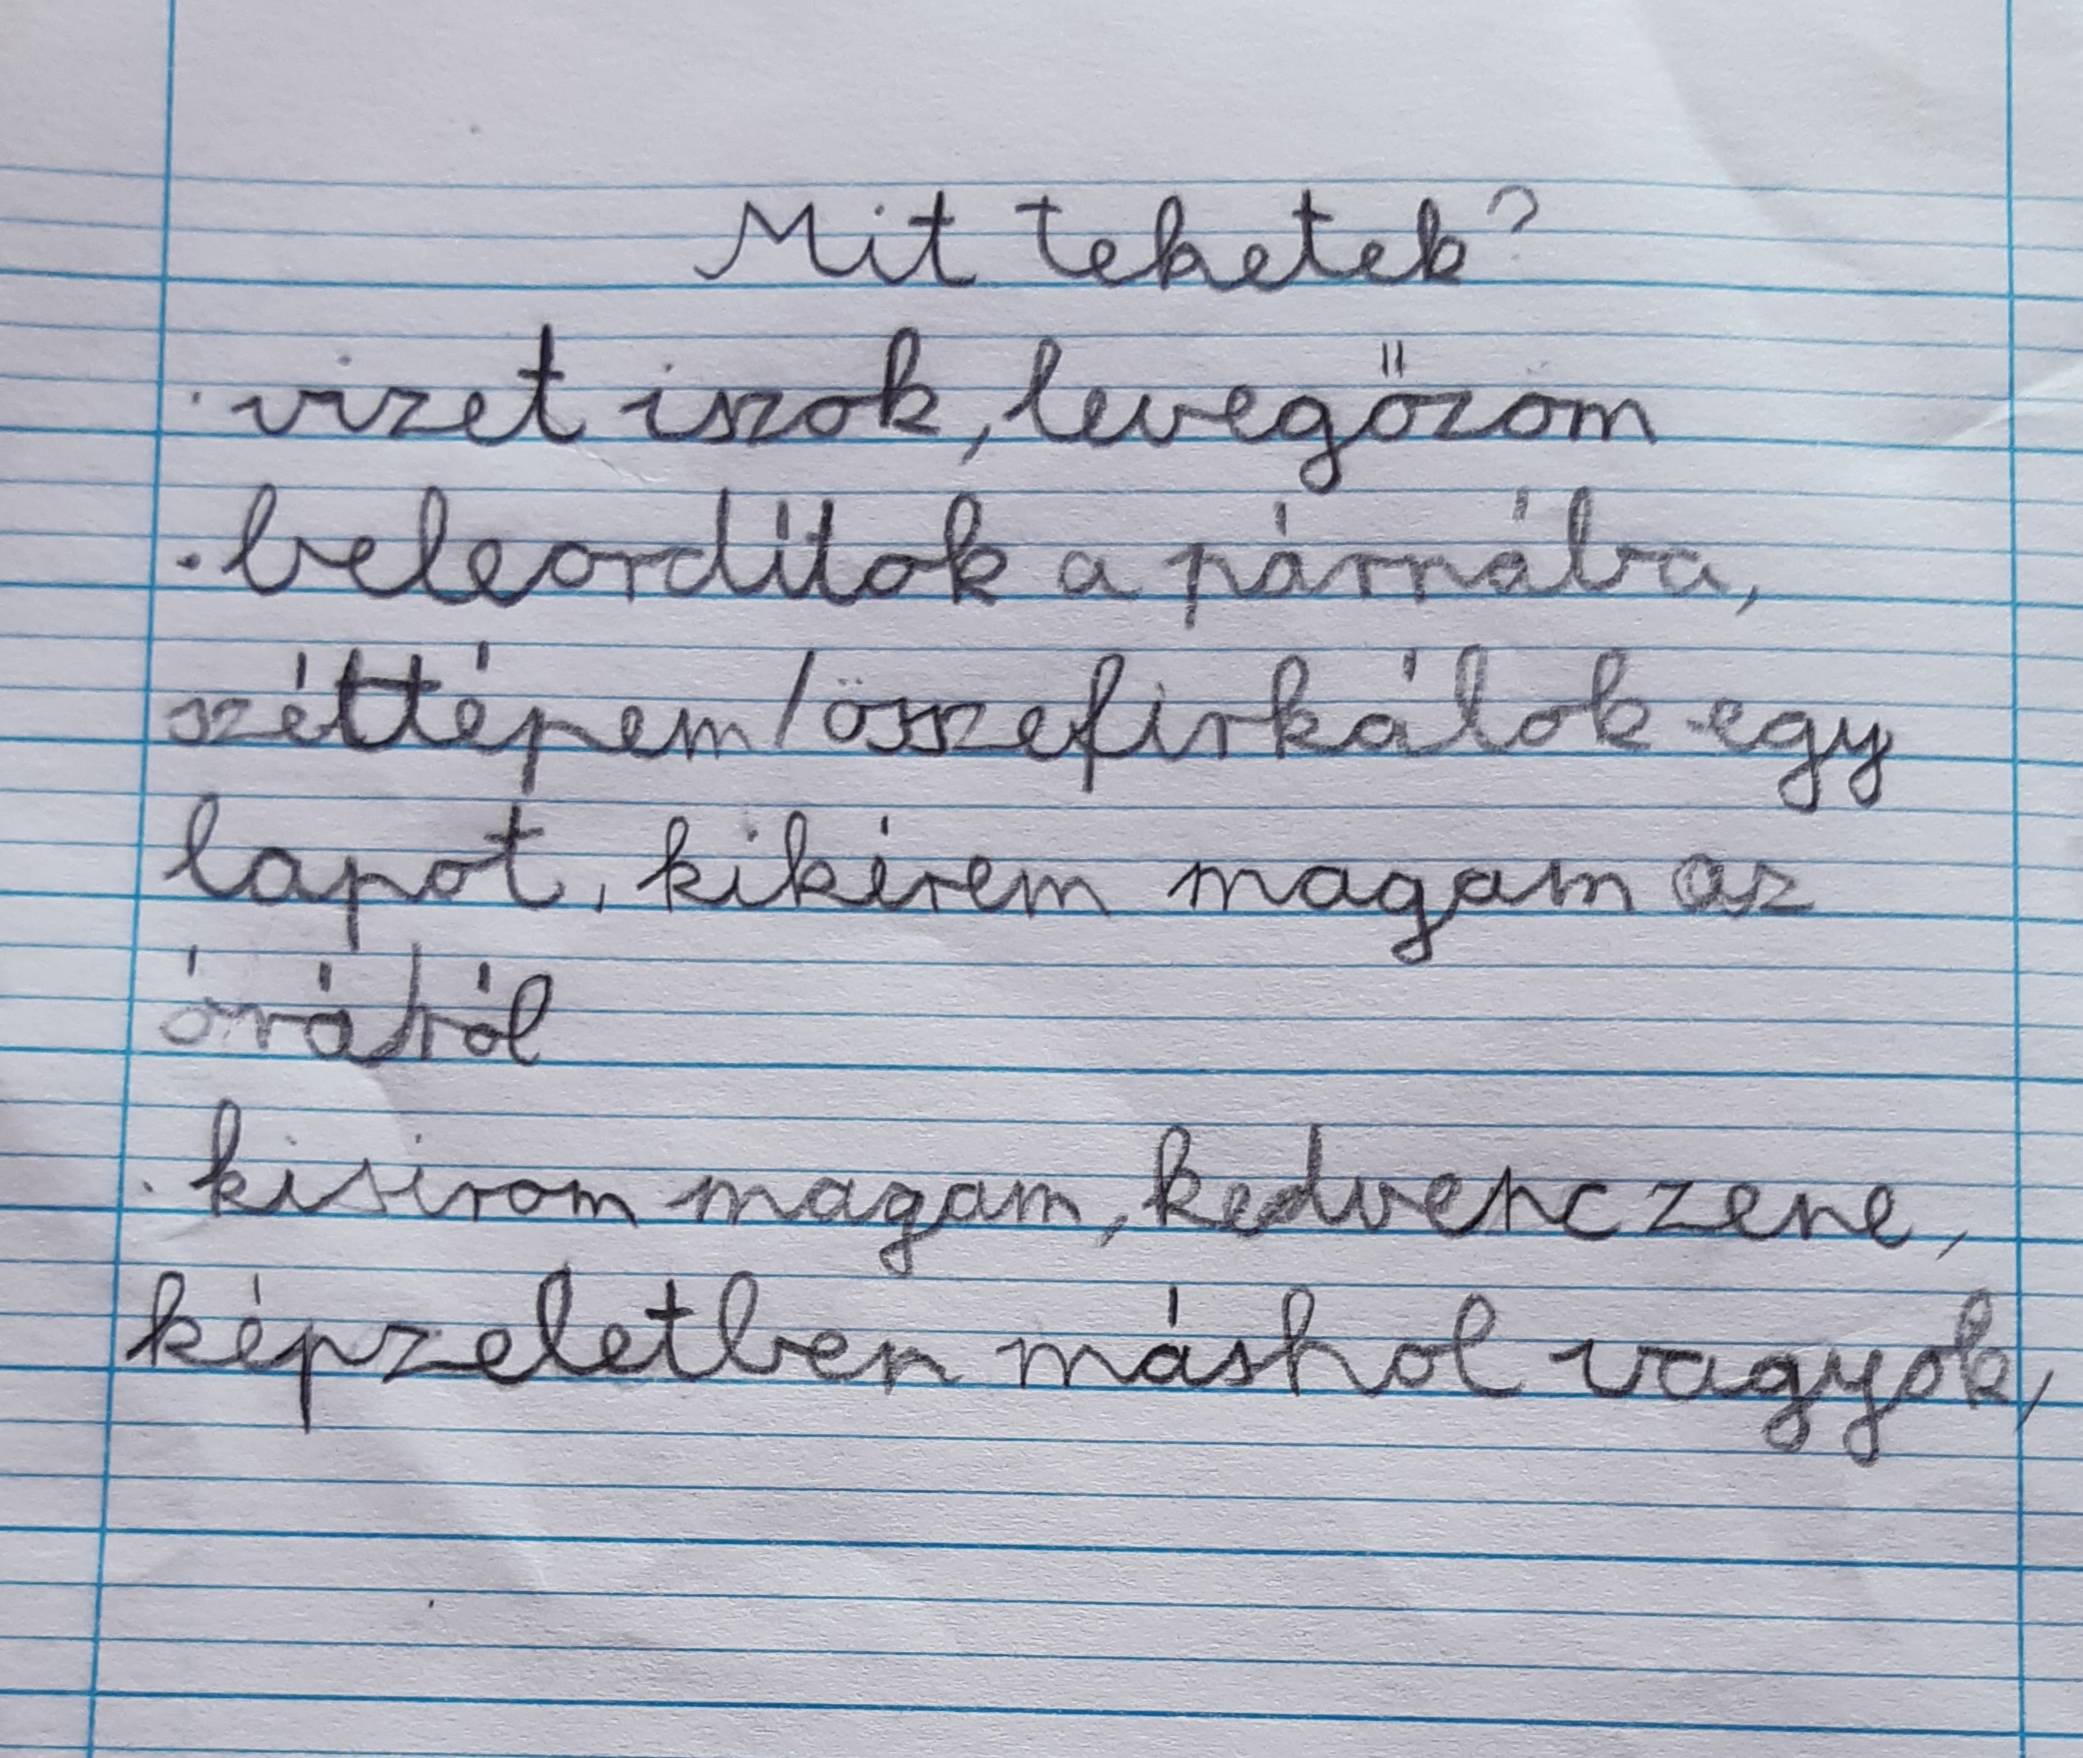 Mit tehetek?
· vizet iszok, levegőzöm
· beleordítok a párnába,
széttépem/összefirkálok egy
lapot, kikérem magam az
óráról
· kisirom magam, kedvenc zene,
képzeletben máshol vagyok,